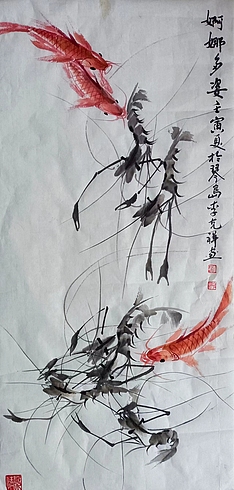 婀娜多姿壬寅夏於琴岛李克祥画